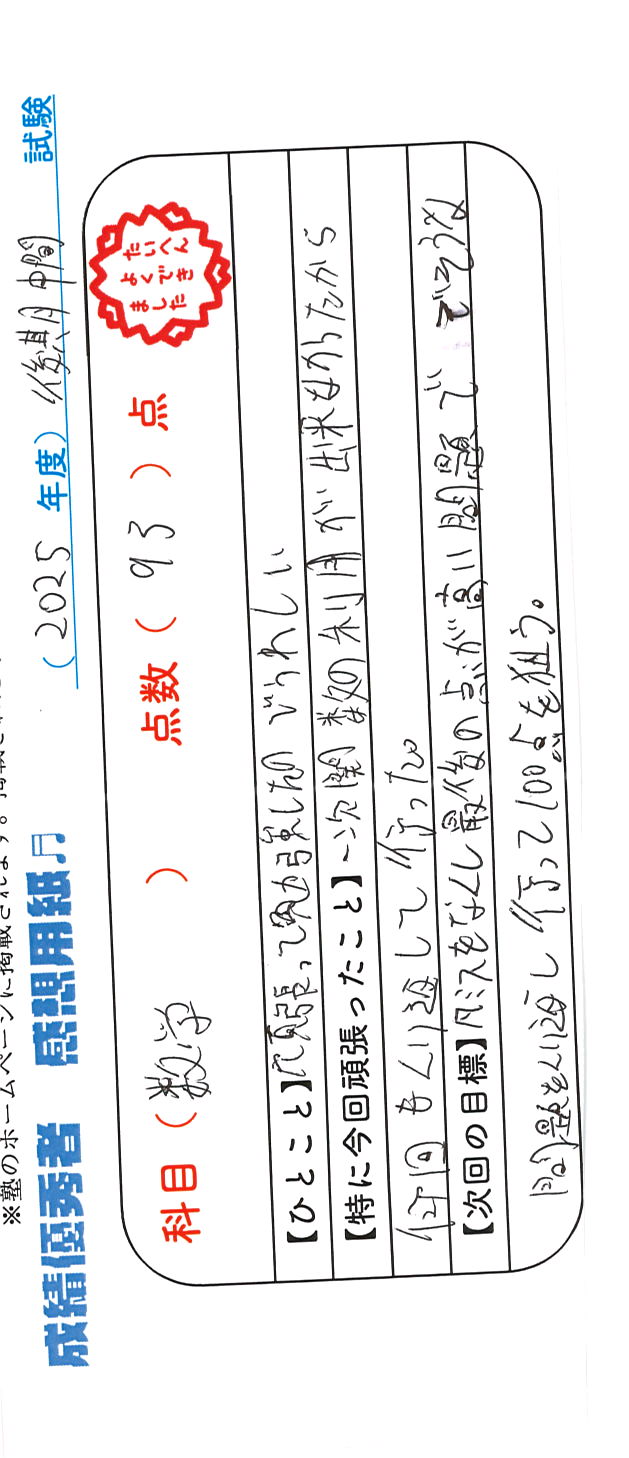 ※塾のホームページに掲載されます。
成績優秀者 感想用紙♬ (2025 年度) 後期中間 試験
科目 ( 数学 ) 点数 ( 93 ) 点
たいへん
よくでき
ました
【ひとこと】頑張って勉強したのでうれしい
【特に今回頑張ったこと】一次関数の利用が出来なかったから
何回もくり返して行った。
【次回の目標】ミスをなくし最後の点が高い問題で でそうな
問題をくり返し行って100点を狙う。